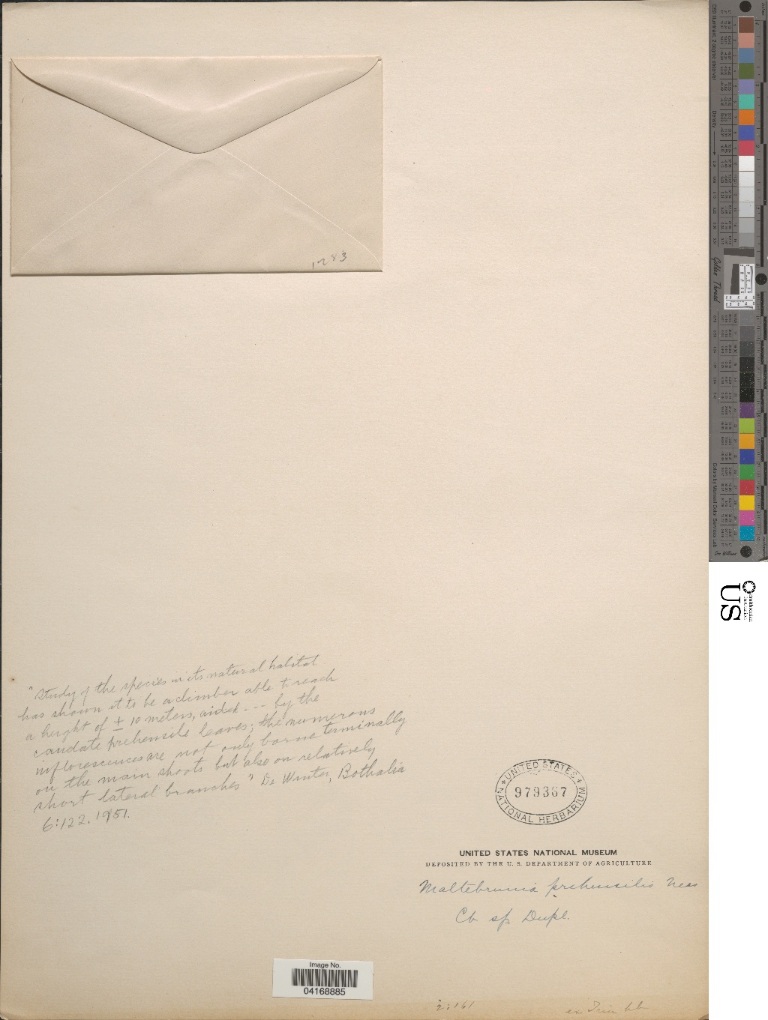 1283
"Study of the species in its natural habitat
has shown it to be a climber able to reach
a height of ± 10 meters, aided --- by the
caudate prehensile leaves; the numerous
inflorescences are not only borne terminally
on the main shoots but also on relatively
short lateral branches" De Winter, Bothalia
6:122. 1951.
UNITED STATES
979367
NATIONAL HERBARIUM
UNITED STATES NATIONAL MUSEUM
DEPOSITED BY THE U. S. DEPARTMENT OF AGRICULTURE
Maltebrunia prehensilis Nees
Cb sp Dupl.
Image No.
04168885
ex
US